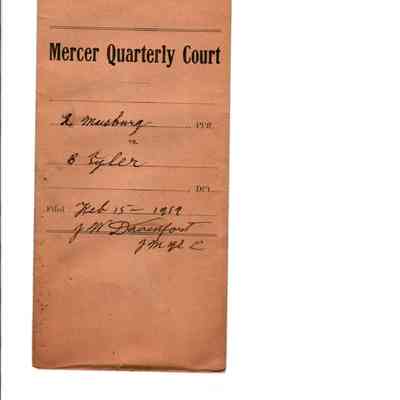 Mercer Quarterly Court
L Musburg PLFF.
vs.
B Tyler
DFT.
Filed Feb 15 - 1919
J W Davenport
J M Q C